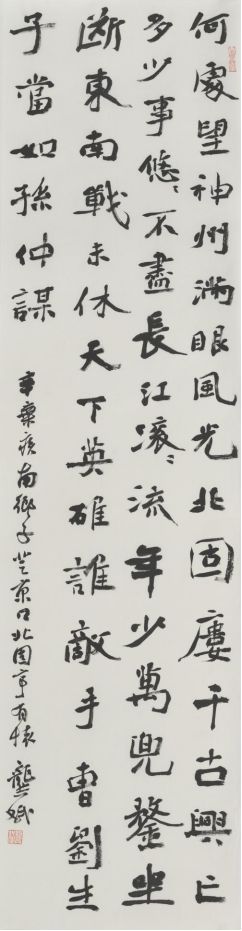 何處望神州滿眼風光北固廔千古興亡
多少事悠〻不盡長江滾〻流年少萬兜鍪坐
斷東南戰未休天下英雄誰敵手曹劉生
子當如孫仲謀
辛棄疾南鄉子登京口北固亭有懷 龔斌